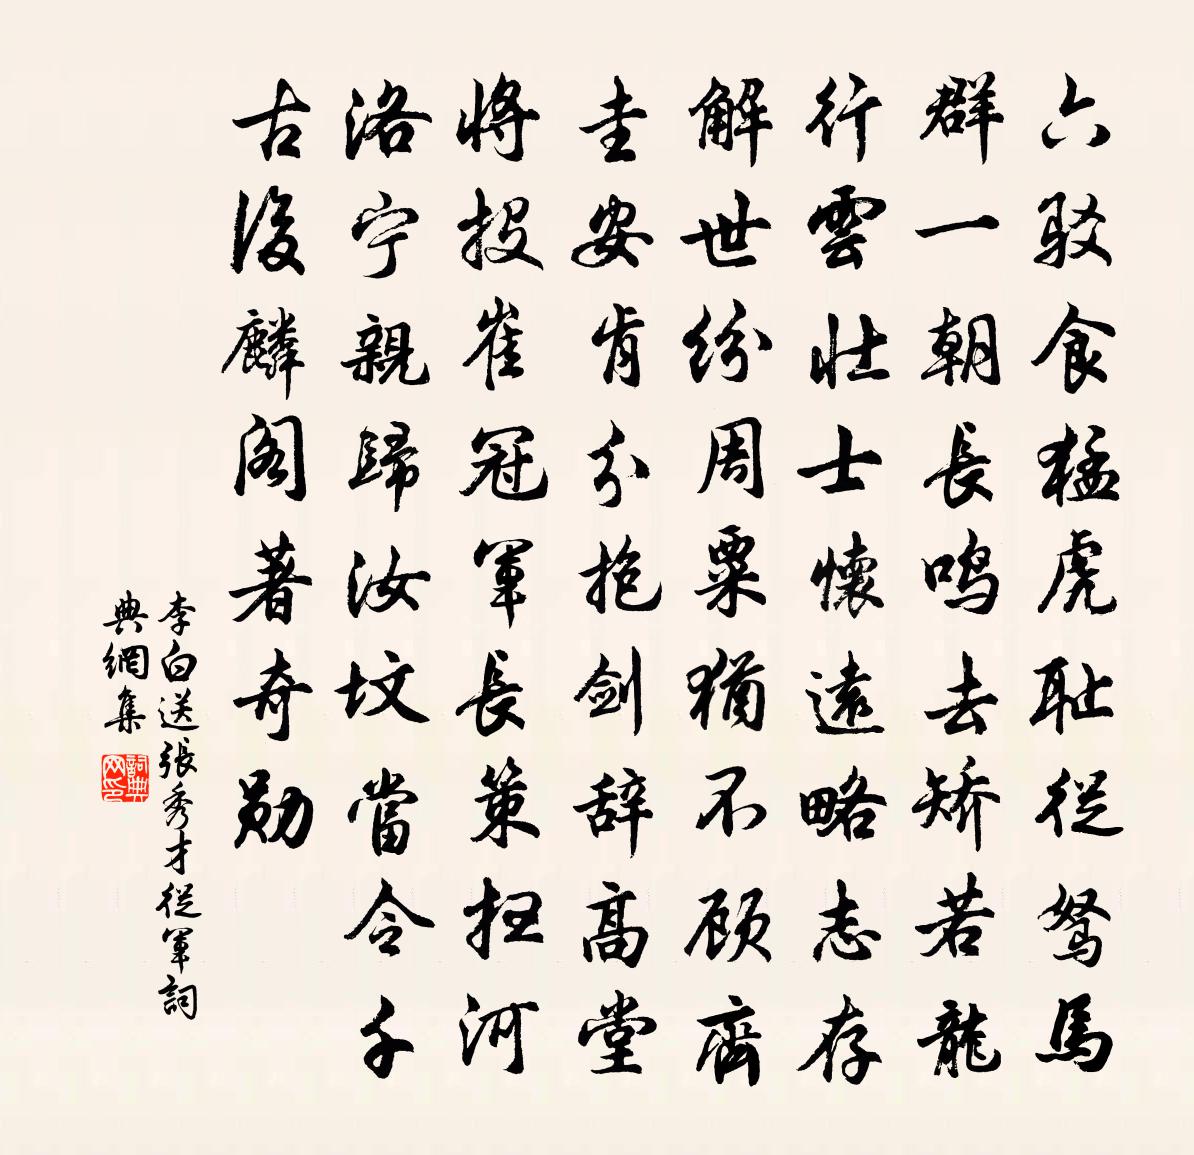 六驳食猛虎耻從驽馬
群一朝長鸣去矫若龍
行雲壮士懷遠略志存
解世纷周粟猶不顾齊
圭安肯分抱剑辞高堂
将投崔冠軍長策扫河
洛宁親歸汝坟當令千
古後麟阁著奇勋
李白送張秀才從軍詞
典網集
詞典
网印